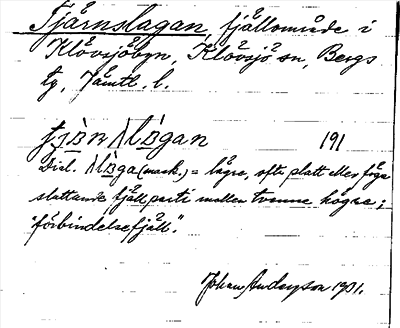 Tjärnslagan, fjällområde i
Klövsjöbyn, Klövsjö sn, Bergs
tg, Jämtl. l.
191
Dial. (mask.) = lägre, ofta platt eller föga
sluttande fjällparti mellan tvenne högre;
"förbindelsefjäll".
Johan Anderzon 1901.